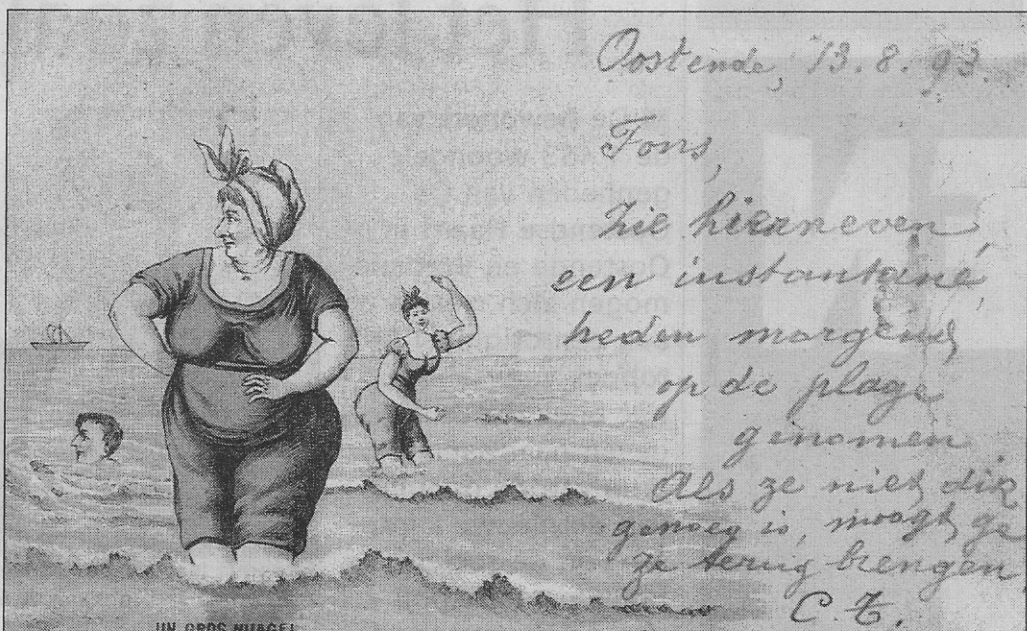 Oostende, 13.8.93.
Fons,
Zie hierneven,
een instantané,
heden morgend
op de plage
genomen
Als ze niet dik
genoeg is, moogt ge
ze terug brengen
C. T.
UN GROS NUAGE!